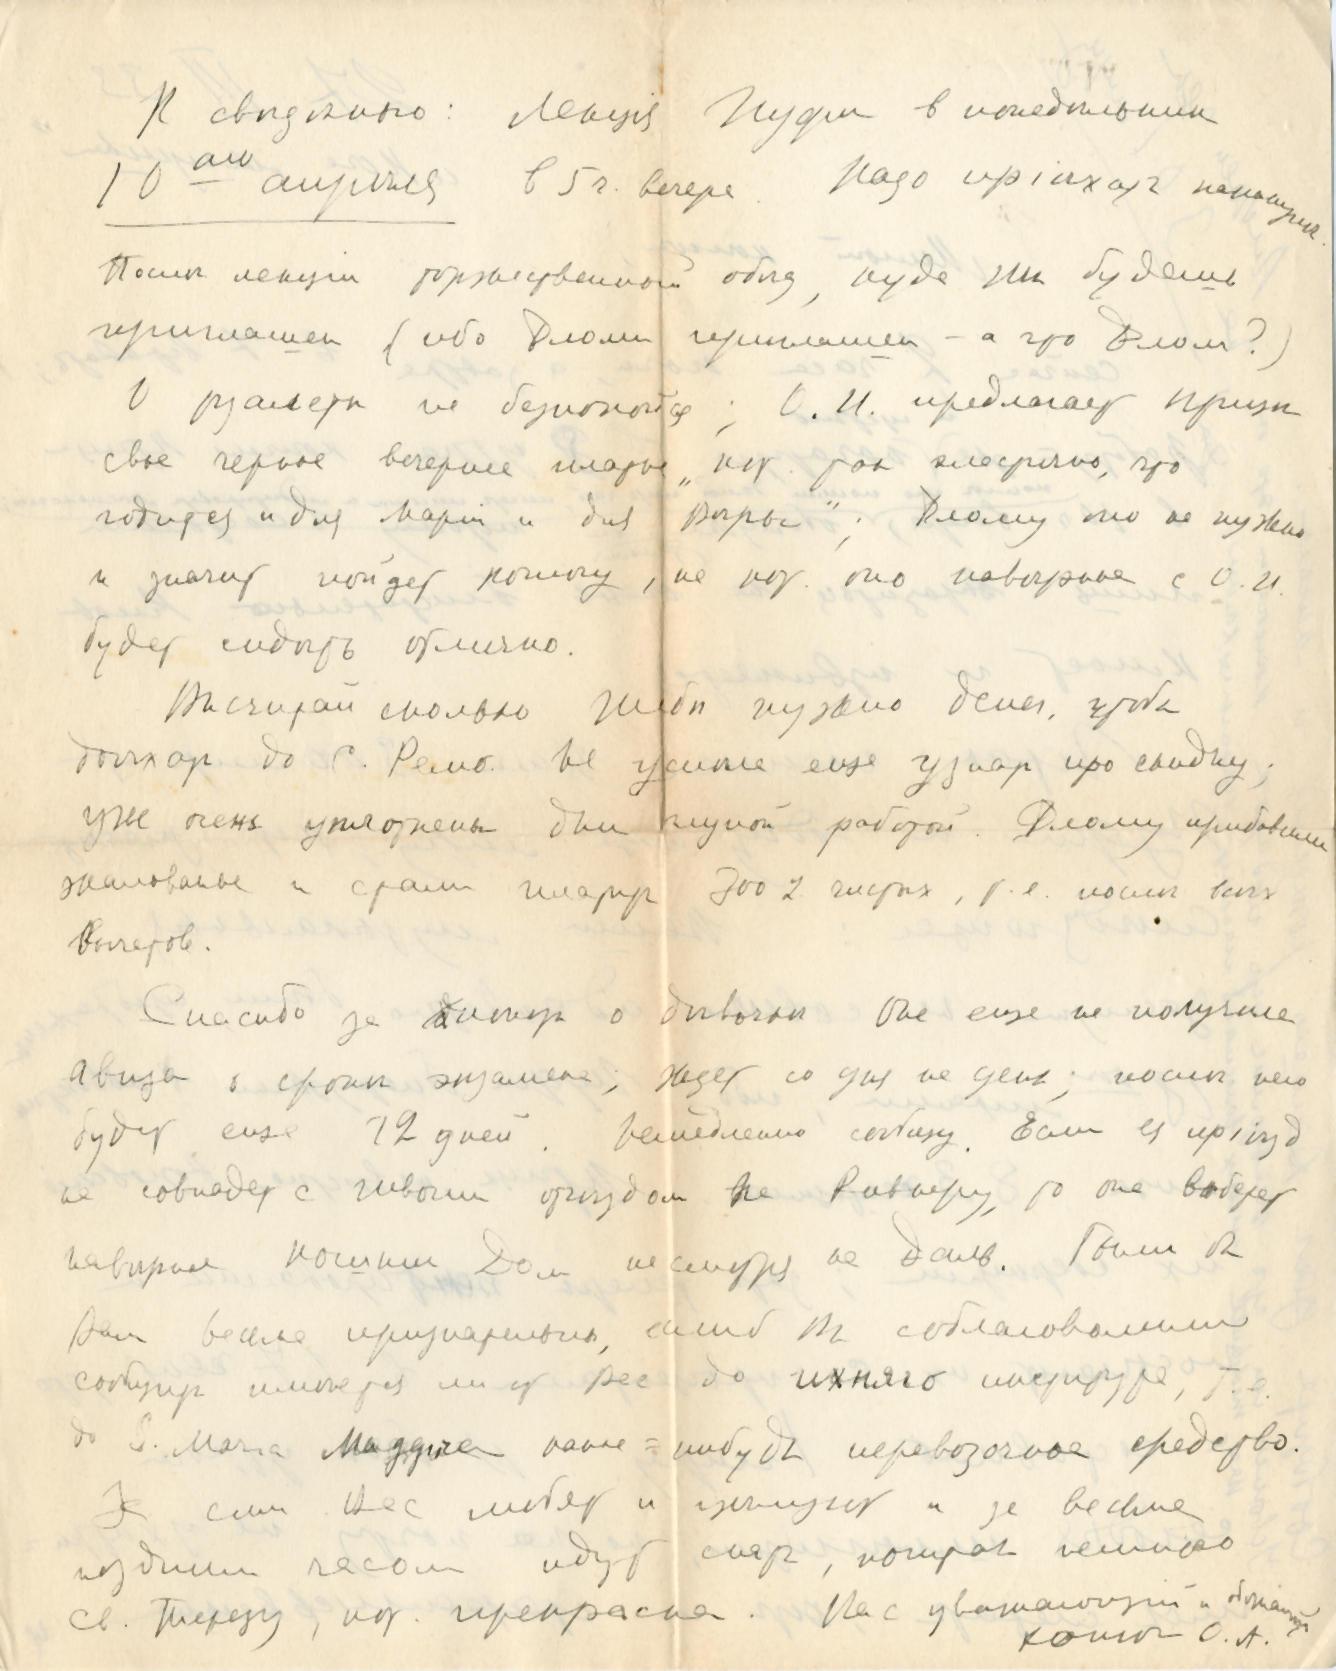 К свѣдѣнію: Лекція Пуфи в понедѣльник
10аго апрѣля в 5 ч. вечера. Надо пріѣхать наканунѣ.
Послѣ лекціи торжественный обѣд, куда ты будешь
приглашен (ибо Фломи приглашен – а что Флом?)
О туалетѣ не безпокойся; О.И. предлагает
свое черное вечернее платье, „кот. так эластично, что
годится и для Маріи и для Вѣры"; Флому оно не нужно
и значит пойдет, на кот. оно навѣрное с О.И.
будет сидѣть отлично.
Высчитай сколько тебѣ нужно денег, чтобы
доѣхать до С. Ремо. Не успѣла еще узнать про скидку;
уже очень уплотнены дни глупой работой. Флому прибавили
жалованье и стали платить 300 чистых, т.е. послѣ всѣх
вычетов.
Спасибо за о дѣвочкѣ. Она еще не получила
авиза о срокѣ экзамена; ждет со дня на день; послѣ него
будет еще 12 дней. Немедленно сообщу. Если ея пріѣзд
не совпадет с твоим отъѣздом на Ривьеру, то она выберет
навѣрное Дом несмотря на даль. Были бы
Вам весьма признательны, если б Вы соблаговолили
сообщить имѣется ли от Вас до ихняго института, т.е.
до S. Maria какое=нибудь перевозочное средство.
За сим Вас любят и цѣлуют и за весьма
поздним часом идут спать, почитав немного
Св. Терезу, кот. прекрасна. Вас уважающий и обожающій
О. А.